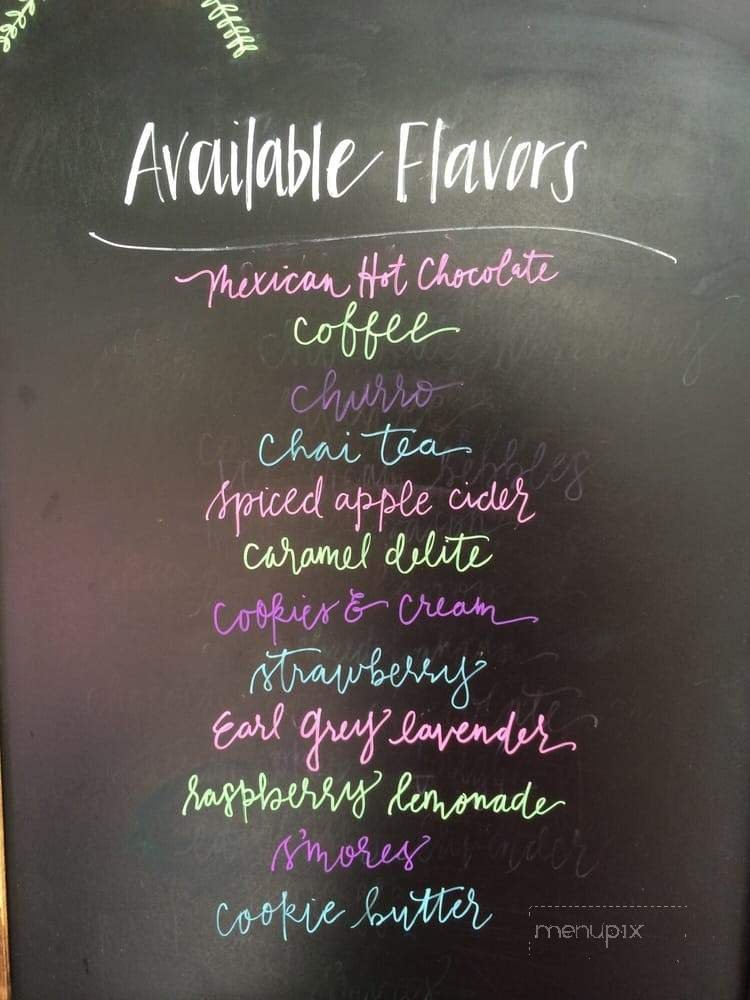 Available Flavors
Mexican Hot Chocolate
coffee
churro
chai tea
spiced apple cider
caramel delite
cookies & cream
strawberry
Earl Grey lavender
raspberry lemonade
s'mores
cookie butter
menupix